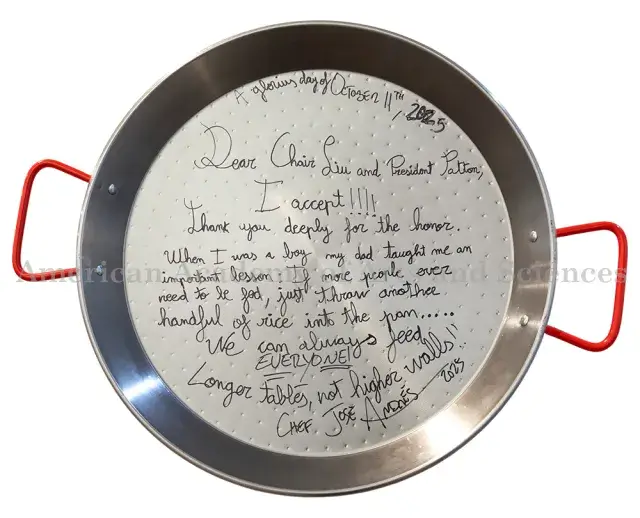 A glorius day of OCTOBER 11TH, 2025
Dear Chair Liu and President Patton,
I accept!!!!
Thank you deeply for the honor..
When I was a boy my dad taught me an
important lesson. If more people ever
need to be fed, just throw another
handful of rice into the pan.....
We can always feed
EVERYONE!
Longer tables, not higher walls!!
CHEF JOSÉ ANDRÉS 2025
American Academy of Arts and Sciences